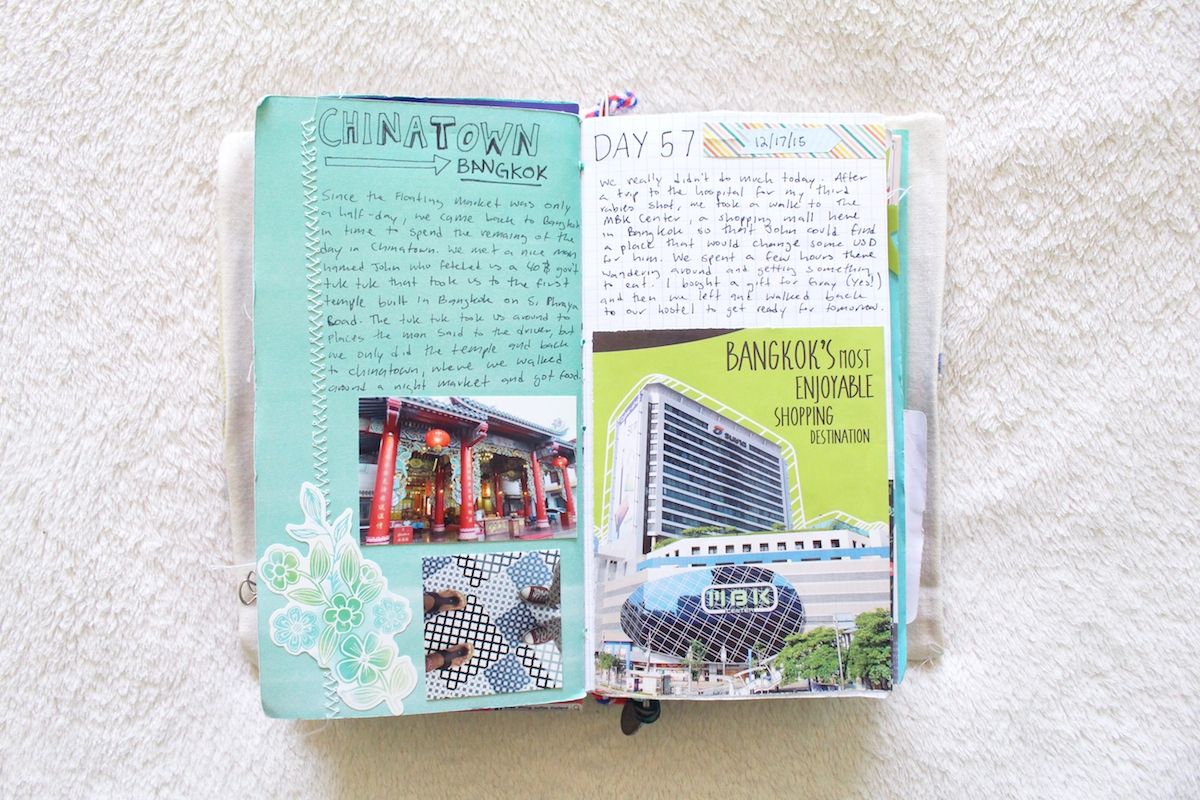 CHINATOWN
BANGKOK
Since the Floating Market was only
a half-day, we came back to Bangkok
in time to spend the remaing of the
day in Chinatown. We met a nice man
named John who fetched us a 40฿ gov't
tuk tuk that took us to the first
temple built in Bangkok on Si Phraya
Road. The tuk tuk took us around to
places the man said to the driver, but
we only did the temple and back
to chinatown, where we walked
around a night market and got food.
DAY 57
12/17/15
We really didn't do much today. After
a trip to the hospital for my third
rabies shot, we took a walk to The
MBK Center, a shopping mall here
in Bangkok so that John could find
a place that would change some USD
for him. We spent a few hours there
wandering around and getting something
to eat. I bought a gift for (Yes!)
and then we left and walked back
to our hostel to get ready for tomorrow.
BANGKOK'S MOST
ENJOYABLE
SHOPPING
DESTINATION
MBK
CENTER